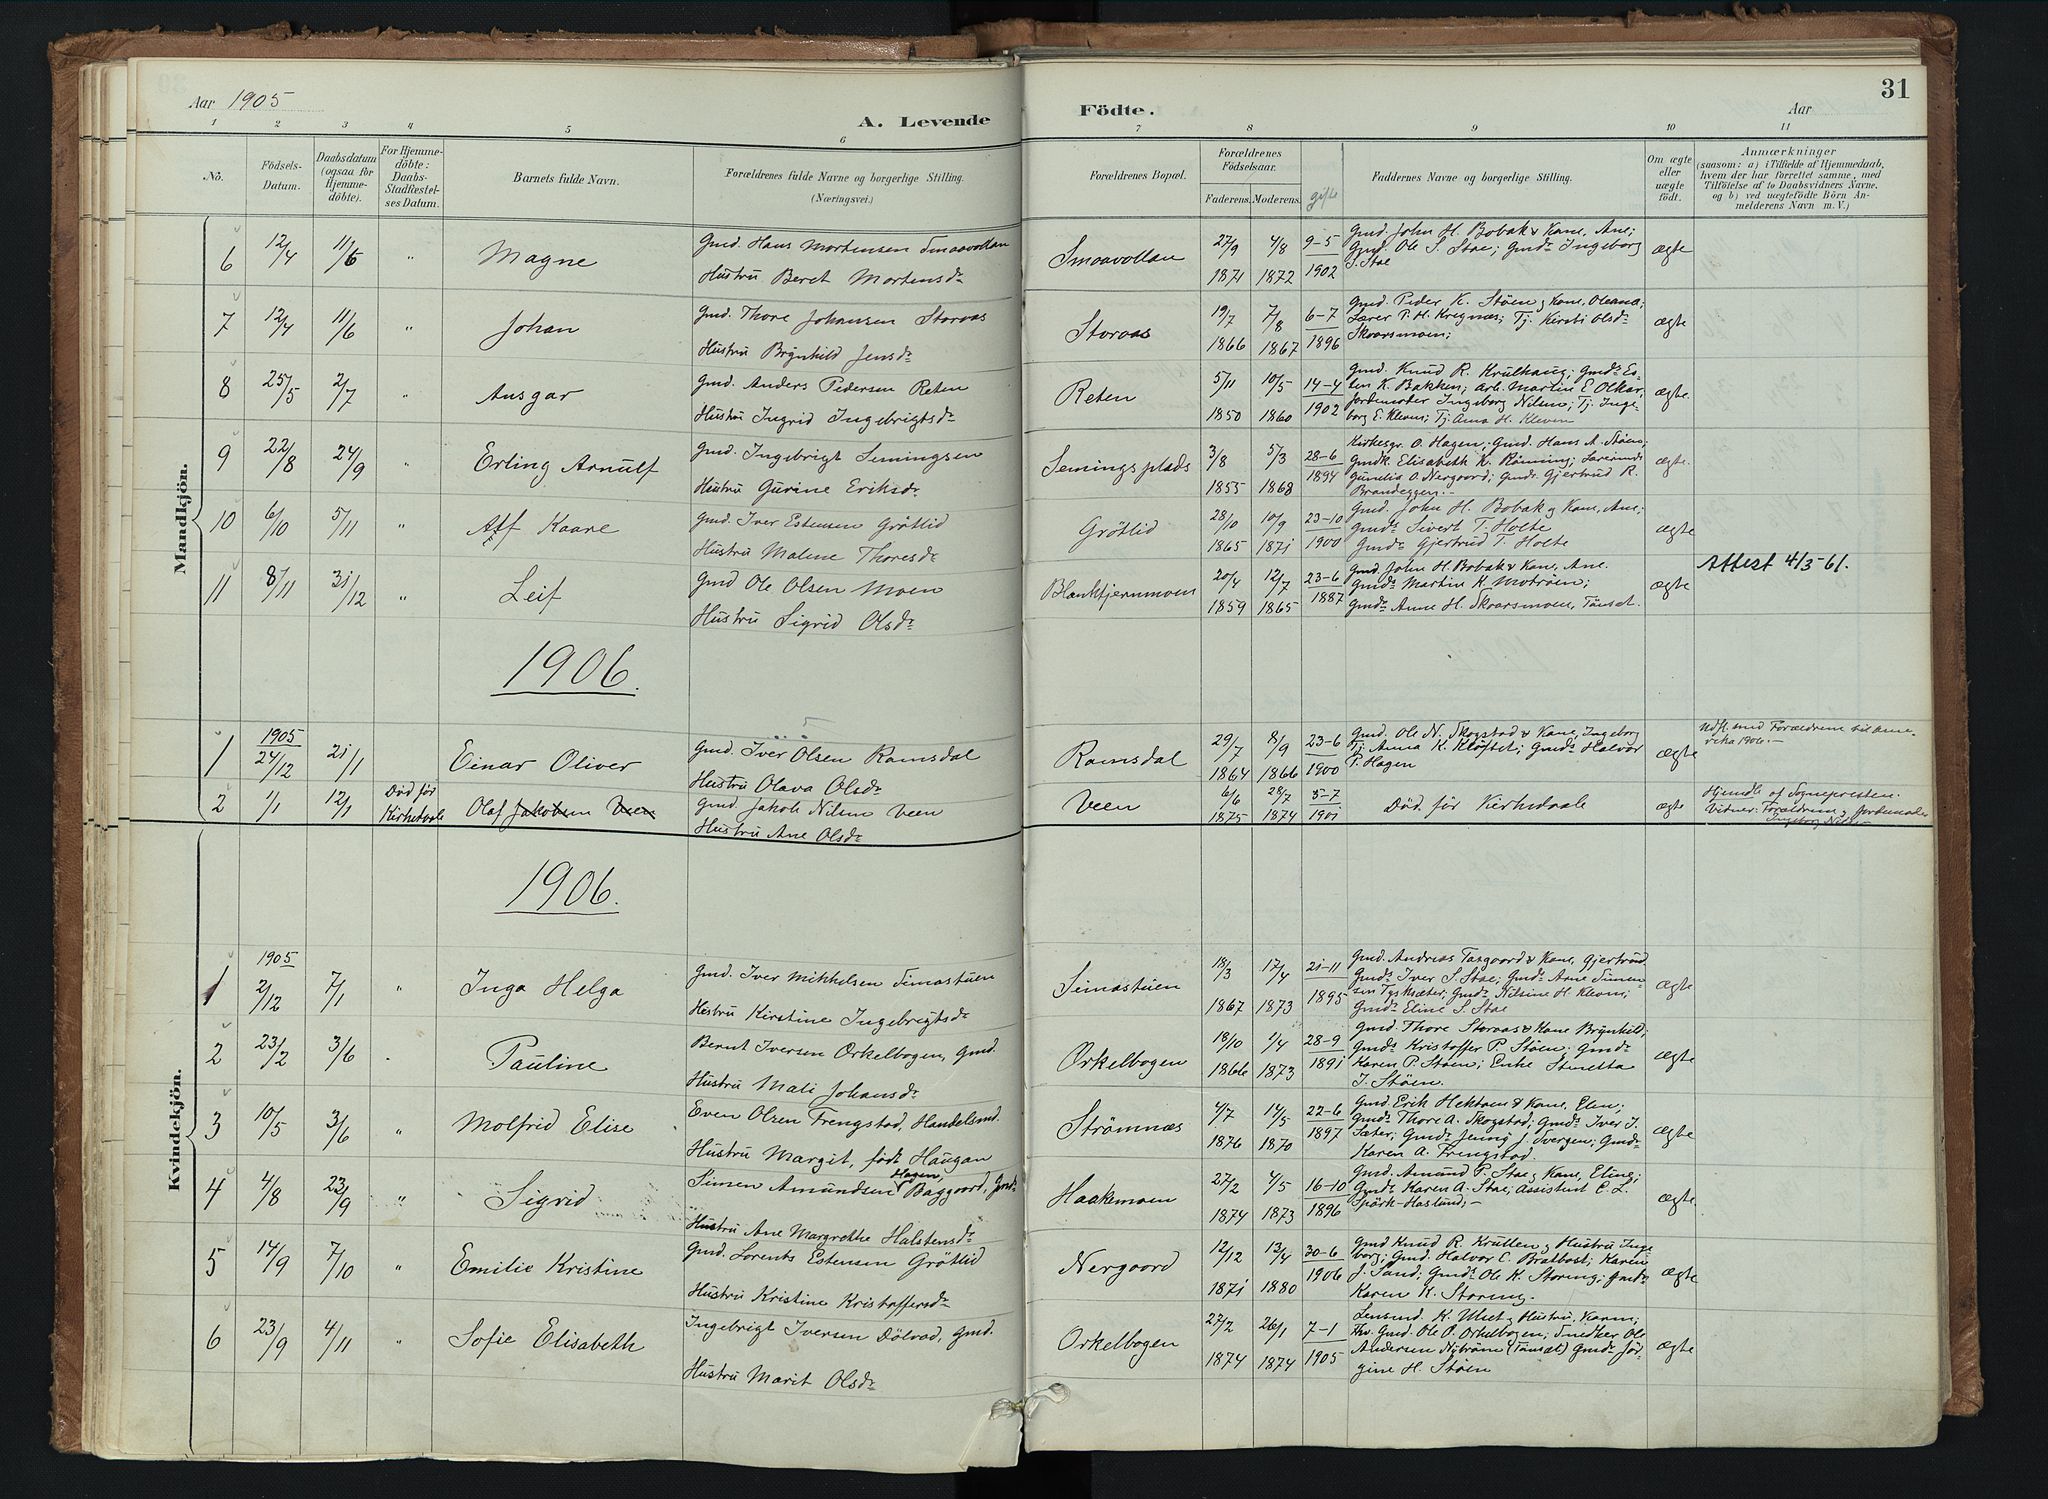 Aar 1905
A. Levende
Födte.
Aar
31
1 2 3 4 5 6 7 8 9 10 11
No.
Födsels-
Datum.
Daabsdatum
(ogsaa for
Hjemme-
döbte).
For Hjemme-
döbte:
Daabs-
Stadfæstel-
ses Datum.
Barnets fulde Navn.
Forældrenes fulde Navne og borgerlige Stilling.
(Næringsvei.)
Forældrenes Bopæl.
Forældrenes
Födselsaar.
Faderens. Moderens.
gifte
Faddernes Navne og borgerlige Stilling.
Om ægte
eller
uægte
født.
Anmærkninger
(saasom: a) i Tilfælde af Hjemmedaab,
hvem der har forrettet samme, med
Tilföielse af to Daabsvidners Navne,
og b) ved uægtefödte Börn An-
melderens Navn m. V.)
Mandkjön.
6 12/4 11/6 " Magne
Gmd. Hans Mortensen Smaavollan
Hustru Beret Mortensdr
Smaavollan
27/9 1871 4/8 1872 9-5 1902
Gmd. John H. Bobak & Kone, Ane;
Gmd. Ole S. Stae; Gmdr Ingeborg
S. Stae
ægte
7 12/4 11/6 " Johan
Gmd. Thore Johansen Storaas
Hustru Brynhild Jensdr
Storaas
19/7 1866 7/8 1867 6-7 1896
Gmd. Peder K. Støen & Kone, Oleana;
Lærer P. H. Kregnæs; Tj. Kirsti Olsdr
Skaarsmoen;
ægte
8 25/5 2/7 " Ansgar
Gmd. Anders Pedersen Reten
Hustru Ingrid Ingebrigtsdr
Reten
5/11 1850 10/5 1860 14-4 1902
Gmd. Knud R. Krulhaug; Gmds Es-
ten K. Bakken; Arb. Martin E. Olkar,
Jordmoder Ingeborg Nilsen; Tj. Inge-
borg E. Kleven; Tj. Anna H. Kleven
ægte
9 22/8 24/9 " Erling Arnulf
Gmd. Ingebrigt Semingsen
Hustru Gurine Eriksdr
Semingsplads
3/8 1855 5/3 1868 28-6 1894
Kirkesgr. O. Hagen; Gmd. Hans A. Støen;
Gmdk. Elisabeth K. Rønning; Lærerinde
Gunelia O. Nergaard; Gmdr. Gjertrud R.
Brandeggen.-
ægte
10 6/10 5/11 " Alf Kaare
Gmd. Iver Estensen Grøtlid
Hustru Malene Thoresdr
Grøtlid
28/10 1865 10/9 1871 23-10 1900
Gmd. John H. Bobak & Kone, Ane;
Gmds Sivert T. Holte
Gmdr Gjertrud T. Holte
ægte
11 8/11 31/12 " Leif
Gmd Ole Olsen Moen
Hustru Sigrid Olsdr
Blanktjernmoen
20/4 1859 12/7 1865 23-6 1887
Gmd. John H. Bobak & Kone, Ane.
Gmds Martin K. Motrøen;
Gmdr Anne H. Skaarsmoen, Tønset.
ægte
Attest 4/3-61.
1906.
1 1905 24/12 21/1 Einar Oliver
Gmd. Iver Olsen Ramsdal
Hustru Olava Olsdr
Ramsdal
29/7 1864 8/9 1866 23-6 1900
Gmd. Ole N. Skogstad & Kone, Ingeborg
Tj. Anna K. Kløftet; Gmds Halvor
P. Hagen
ægte
Udfl. med Forældrene til Ame-
rika 1906.-
2 1/1 12/1 Død før Kirkedaab Olaf Jakobsen Veen
Gmd. Jakob Nilsen Veen
Hustru Ane Olsdr
Veen
6/6 1875 28/7 1874 5-7 1901
Død før Kirkedaab
ægte
Hjemdb. af Sognepresten.
Vidner: Forældrene & Jordemoder
Ingeborg Nilsen
1906.
Kvindekjön.
1 1905 2/12 7/1 " Inga Helga
Gmd. Iver Mikkelsen Simastuen
Hustru Kirstine Ingebrigtsdr
Simastuen
18/3 1867 17/4 1873 21-11 1895
Gmd. Andreas Tangaard & Kone, Gjertrud
Gmds Iver S. Stae; Gmds Arne Simen-
sen Tysksæter; Gmdr Nilsine H. Kleven;
Gmdr Eline S. Stae
ægte
2 23/2 3/6 Pauline
Bernt Iversen Orkelbogen, Gmd.
Hustru Mali Johansdr
Orkelbogen
18/10 1866 1/4 1873 28-9 1891
Gmd. Thore Storaas & Kone Brynhild;
Gmds Kristoffer P. Støen. Gmdr
Karen P. Støen; Enke Sinetta
J. Støen.
ægte
3 10/5 3/6 " Molfrid Elise
Even Olsen Frengstad, Handelsmd.
Hustru Margit, født Haugan
Strømnæs
4/7 1876 14/5 1870 22-6 1897
Gmd. Erik Hektoen & Kone, Elen;
Gmds Thore A. Skogstad; Gmds Iver I.
Sæter; Gmdr Jenny J. Svergen; Gmdr
Karen A. Frengstad.
ægte
4 4/8 23/9 " Sigrid
Simen Amundsen Hagen, Baggaard, Gmds
Hustru Ane Margrethe Halstensdr
Haakmoen
27/2 1874 4/5 1873 16-10 1896
Gmd. Amund P. Stae & Kone, Eline;
Gmdr Karen A. Stae; Assistent C. L.
Spärk-Haslund;-
ægte
5 14/9 7/10 " Emilie Kristine
Gmd. Lorents Estensen Grøtlid
Hustru Kristine Kristoffersdr
Nergaard
12/12 1871 13/4 1880 30-6 1906
Gmd Knud R. Krullen & Hustru Inge-
borg; Gmd. Halvor E. Bratbost; Karen
J. Sand; Gmds Ole K. Storeng; Gmdr
Karen K. Storeng.
ægte
6 23/9 4/11 " Sofie Elisabeth
Ingebrigt Iversen Dølvad, Gmd.
Hustru Marit Olsdr
Orkelbogen
27/2 1874 26/1 1874 7-1 1905
Lensmd. K. Uset & Hustru, Karen;
Thv. Gmd. Ole O. Orkelbogen; Snedker Ole
Andersen Nytrøen (Tønset) Gmdr Jør-
gine H. Støen
ægte